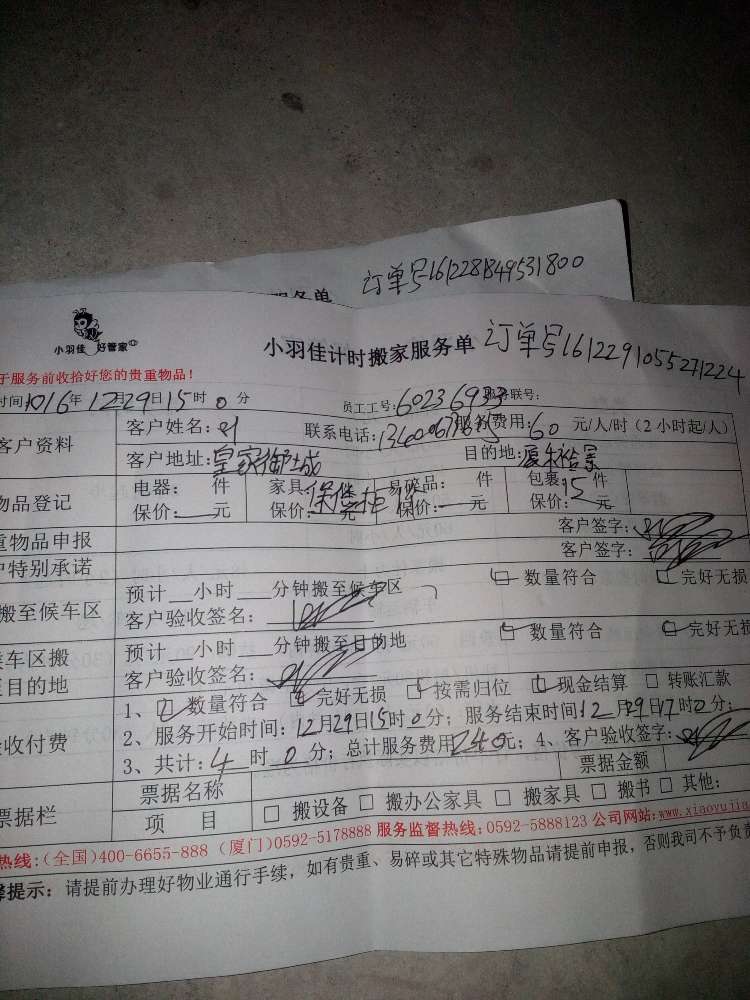 订单号1612281849531800
服务单
小羽佳 好管家
小羽佳计时搬家服务单 订单号1612291055271224
于服务前收拾好您的贵重物品！
时间2016年12月29日15时0分 员工工号:60236933 联号:
客户资料 客户姓名: 联系电话: 服务费用:60元/人/时（2小时起/人）
客户地址:皇家御城 目的地:
物品登记 电器: 件 家具: 件 易碎品: 件 包裹:15件
保价: 元 保价: 元 保价: 元 保价: 元
重物品申报 客户签字:
户特别承诺 客户签字:
搬至候车区 预计 小时 分钟搬至候车区 数量符合 完好无损
客户验收签名:
候车区搬 预计 小时 分钟搬至目的地 数量符合 完好无损
至目的地 客户验收签名:
1、 数量符合 完好无损 按需归位 现金结算 转账汇款
验收付费 2、服务开始时间:12月29日15时0分；服务结束时间12月29日17时0分；
3、共计:4时0分；总计服务费用240元；4、客户验收签字:
票据栏 票据名称 票据金额
项 目 搬设备 搬办公家具 搬家具 搬书 其他:
热线:(全国)400-6655-888 (厦门)0592-5178888 服务监督热线:0592-5888123 公司网站:www.xiaoyujia
馨提示：请提前办理好物业通行手续，如有贵重、易碎或其它特殊物品请提前申报，否则我司不予负责